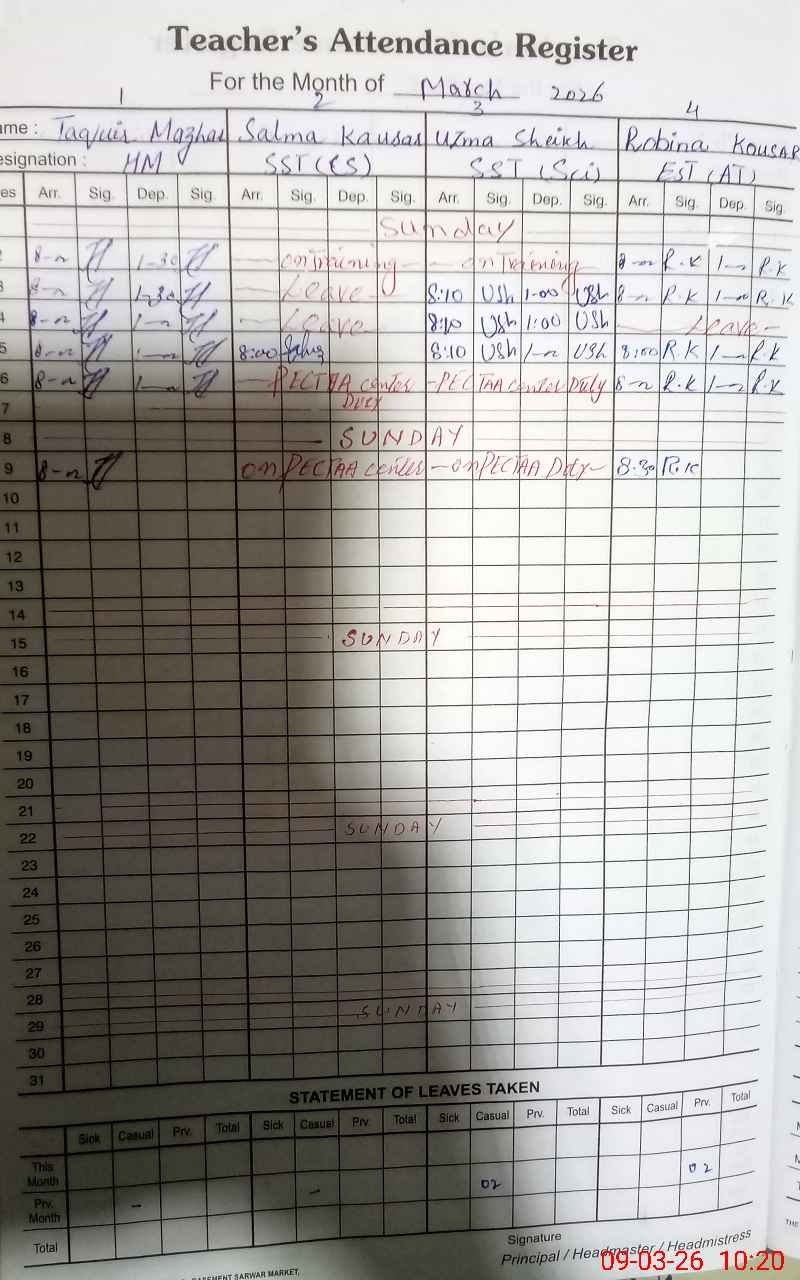 Teacher's Attendance Register
For the Month of March 2026
1 2 3 4
ame : Taquis Mazhar Salma Kausar Uzma Sheikh Robina Kousar
esignation : HM SST (CS) SST (Sci) EST (AT)
es Arr. Sig. Dep. Sig. Arr. Sig. Dep. Sig. Arr. Sig. Dep. Sig. Arr. Sig. Dep. Sig.
Sunday
2 8-n 1-30 on Training - on Training 8-n R.K 1-n R.K
3 8-n 1-30 - Leave - 8:10 USh 1:00 USh 8-n R.K 1-n R.K
4 8-n 1-n - Leave 8:10 USh 1:00 USh - Leave -
5 8-n 1-n 8:00 8:10 USh 1-n USh 8:00 R.K 1-n R.K
6 8-n 1-n - PECTAA center - PECTAA center Duty 8-n R.K 1-n R.K
Duty
7
8 - SUNDAY
9 8-n on PECTAA center - on PECTAA Duty - 8:30 R.K
10
11
12
13
14
15 SUNDAY
16
17
18
19
20
21
22 SUNDAY
23
24
25
26
27
28
29 SUNDAY
30
31
STATEMENT OF LEAVES TAKEN
Sick Casual Prv. Total Sick Casual Prv. Total Sick Casual Prv. Total Sick Casual Prv. Total
This Month
Prv. Month - - 02 02
Total
Signature
Principal / Headmaster / Headmistress
BASEMENT SARWAR MARKET,
THE
09-03-26 10:20